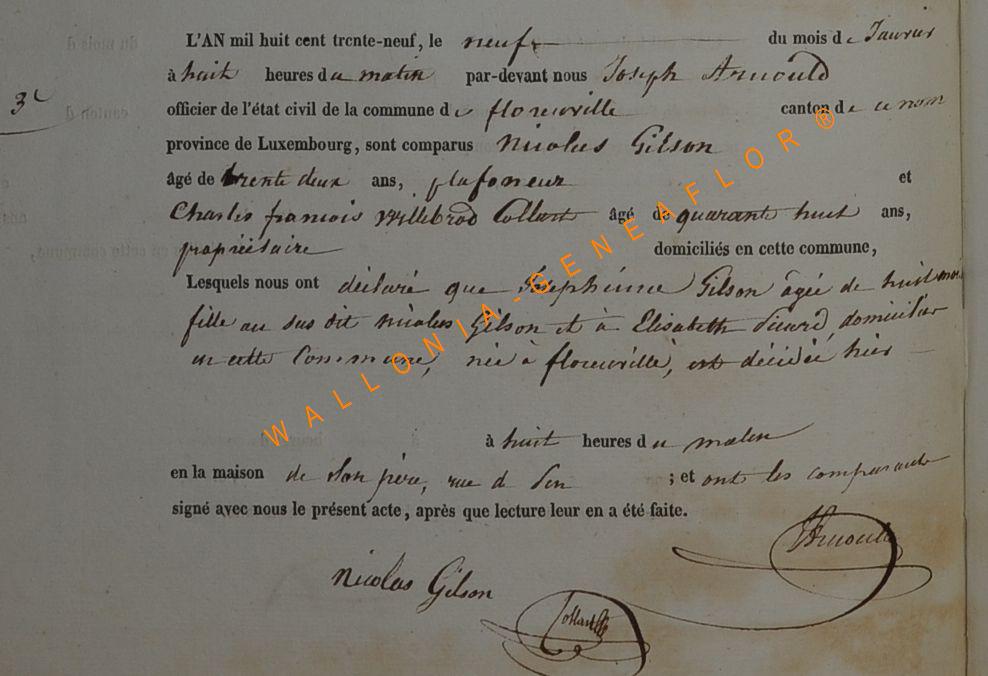 L'AN mil huit cent trente-neuf, le neuf du mois de Janvier
à huit heures du matin par-devant nous Joseph Arnould
3e officier de l'état civil de la commune de florenville canton de ce nom
province de Luxembourg, sont comparus Nicolas Gilson
âgé de trente deux ans, plafoneur et
Charles francois Willebrod Collart âgé de quarante huit ans,
propriétaire domiciliés en cette commune,
Lesquels nous ont déclaré que Josephinne Gilson âgée de huit mois
fille au sus dit nicolas Gilson et à Elisabeth domiciliés
en cette Commune, née à florenville, est décédée hier
à huit heures du matin
en la maison de son père, rue d ; et ont les comparants
signé avec nous le présent acte, après que lecture leur en a été faite.
JArnould
Nicolas Gilson
Collart
WALLONIA-GENEAFLOR®